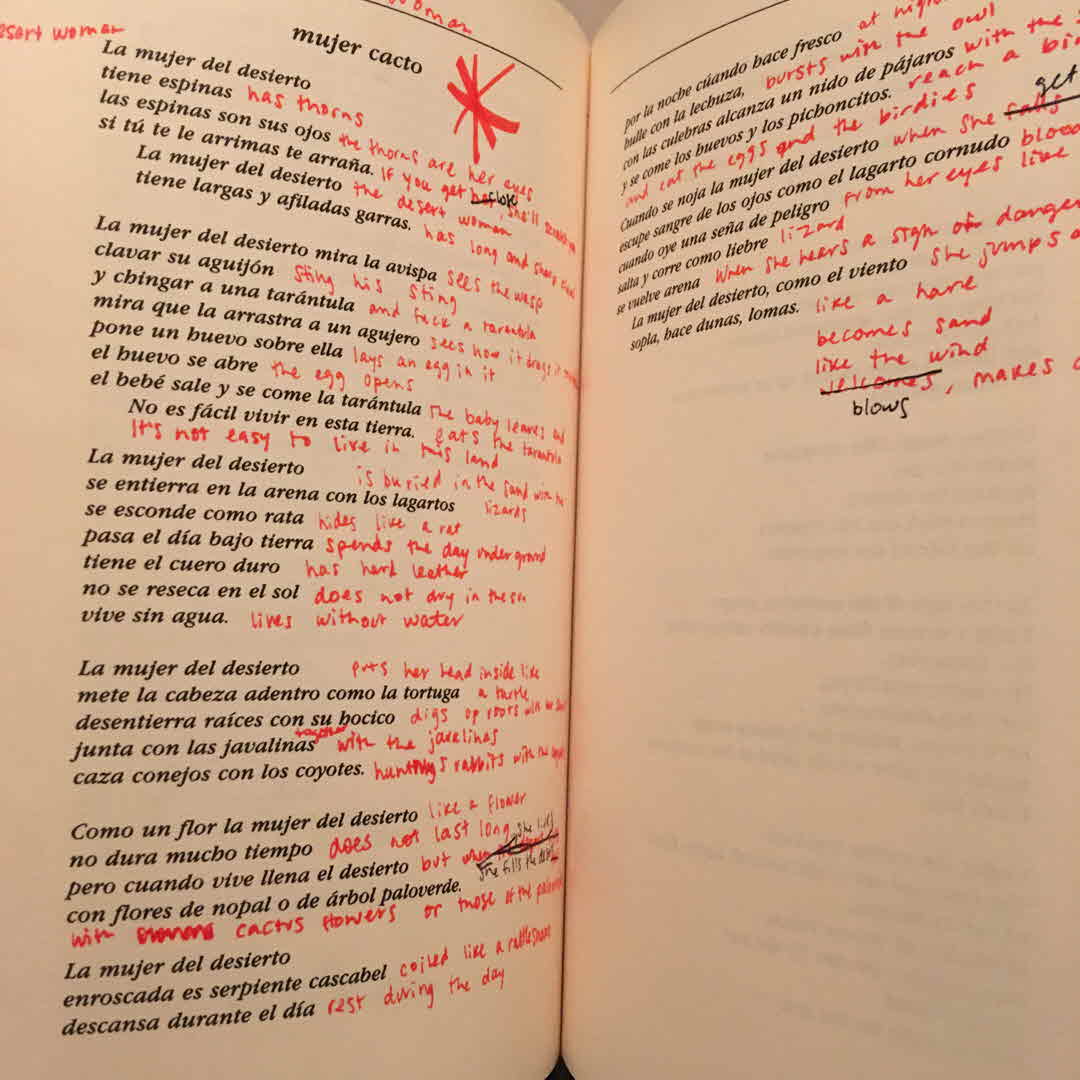 woman
esert woman
mujer cacto
La mujer del desierto
tiene espinas has thorns
las espinas son sus ojos the thorns are her eyes
si tú te le arrimas te arraña. If you get close, she'll
La mujer del desierto the desert woman
tiene largas y afiladas garras. has long and sharp
La mujer del desierto mira la avispa sees the wasp
clavar su aguijón sting his sting
y chingar a una tarántula and fuck a tarantula
mira que la arrastra a un agujero sees how it drags it
pone un huevo sobre ella lays an egg in it
el huevo se abre the egg opens
el bebé sale y se come la tarántula the baby leaves and
No es fácil vivir en esta tierra. eats the tarantula
It's not easy to live in this land
La mujer del desierto is buried in the sand with the
se entierra en la arena con los lagartos lizards
se esconde como rata hides like a rat
pasa el día bajo tierra spends the day underground
tiene el cuero duro has hard leather
no se reseca en el sol does not dry in the sun
vive sin agua. lives without water
La mujer del desierto puts her head inside like
mete la cabeza adentro como la tortuga a turtle
desentierra raíces con su hocico digs up roots with her
together
junta con las javalinas with the javelinas
caza conejos con los coyotes. hunts rabbits with the
Como un flor la mujer del desierto like a flower
no dura mucho tiempo does not last long she lives
pero cuando vive llena el desierto but when she fills the
con flores de nopal o de árbol paloverde.
with cactus flowers or those of the
La mujer del desierto
enroscada es serpiente cascabel coiled like a rattlesnake
descansa durante el día rest during the day
por la noche cúando hace fresco at
bulle con la lechuza, bursts with the owl
con las culebras alcanza un nido de pájaros with the
y se come los huevos y los pichoncitos. reach a
and eat the eggs and the birdies get
Cuando se noja la mujer del desierto when she
escupe sangre de los ojos como el lagarto cornudo blood
cuando oye una seña de peligro from her eyes like
salta y corre como liebre lizard
se vuelve arena when she hears a sign of danger
La mujer del desierto, como el viento she jumps
sopla, hace dunas, lomas. like a hare
becomes sand
like the wind
welcomes, makes
blows